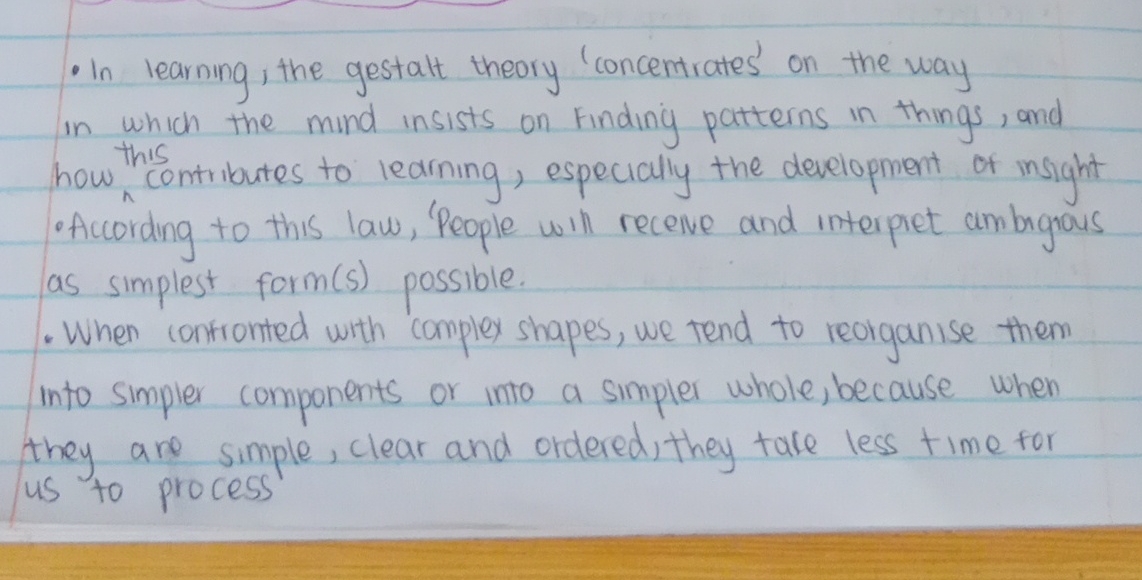 • In learning, the gestalt theory 'concentrates' on the way
in which the mind insists on Finding patterns in things, and
how this contributes to learning, especially the development of insight
• According to this law, 'People will receive and interpret ambigious
as simplest form(s) possible.
• When confronted with complex shapes, we tend to reorganise them
into simpler components or into a simpler whole, because when
they are simple, clear and ordered, they take less time for
us to process'